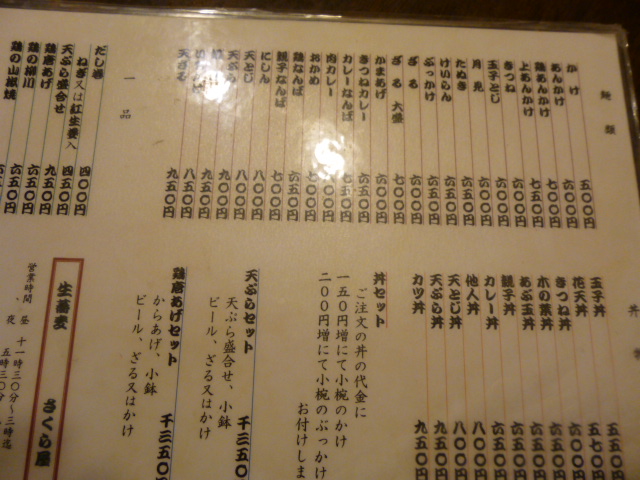 麺類
かけ 五〇〇円
あんかけ 六〇〇円
鶏あんかけ 七〇〇円
上あんかけ 七五〇円
きつね 六五〇円
玉子とじ 六〇〇円
月見 六〇〇円
たぬき 六五〇円
けいらん 六五〇円
ぶっかけ 六五〇円
ざる 六〇〇円
ざる 大盛 七〇〇円
かまあげ 六〇〇円
きつねカレー 六五〇円
カレーなんば 七五〇円
肉カレー 八〇〇円
おかめ 七〇〇円
鶏なんば 六五〇円
親子なんば 七〇〇円
にしん 八〇〇円
天とじ 八〇〇円
天ぷら 七〇〇円
九五〇円
八五〇円
天ざる 九五〇円
一品
だし巻 四〇〇円
ねぎ又は紅生姜入 四五〇円
天ぷら盛合せ 九五〇円
鶏唐あげ 六五〇円
鶏の柳川 六五〇円
鶏の山椒焼
丼
玉子丼 五五〇円
花天丼 五七〇円
きつね丼 六〇〇円
木の葉丼 六五〇円
あぶ玉丼 六五〇円
親子丼 六五〇円
カレー丼 六五〇円
他人丼 八〇〇円
天とじ丼 八〇〇円
天ぷら丼 九五〇円
カツ丼 九五〇円
丼セット
ご注文の丼の代金に
一五〇円増にて小椀のかけ
二〇〇円増にて小椀のぶっかけ
お付けしま
天ぷらセット 千三五〇
天ぷら盛合せ、小鉢
ビール、ざる又はかけ
鶏唐あげセット 千三五〇
からあげ、小鉢
ビール、ざる又はかけ
生蕎麦 さくら屋
営業時間 昼 十一時三〇分〜三時迄
、夜 五時三〇分